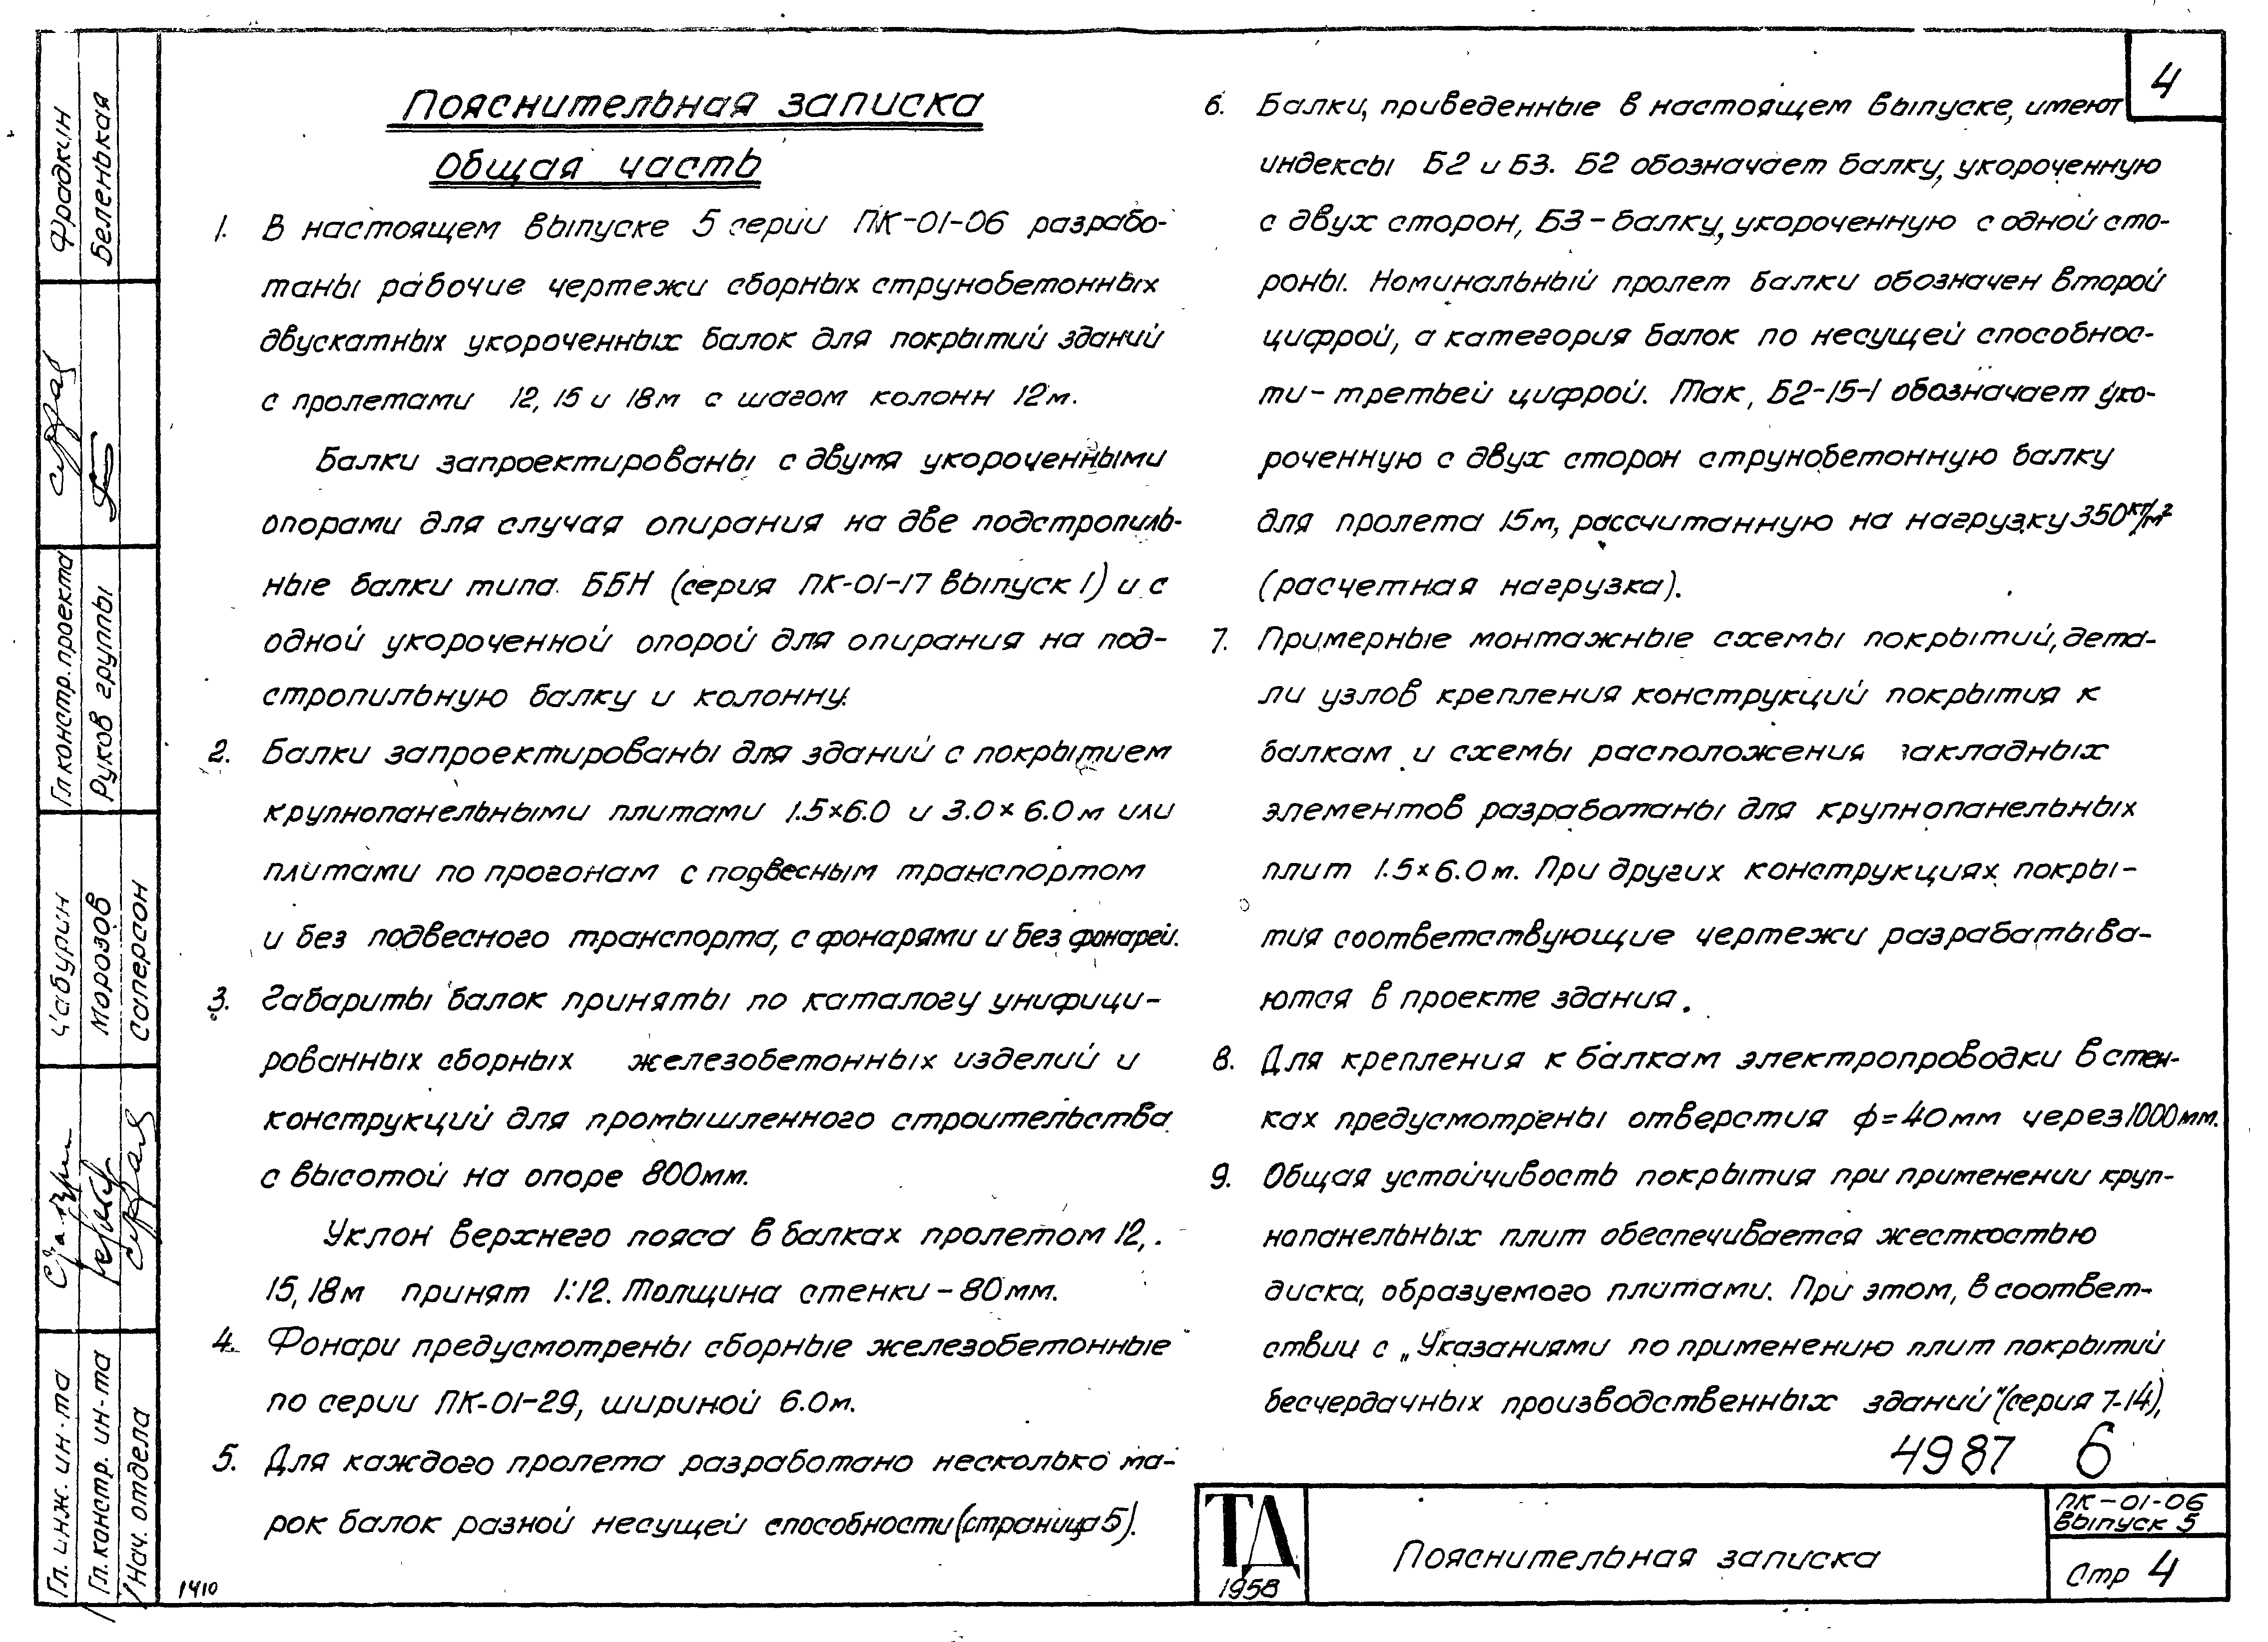 4
Пояснительная записка
Общая часть
1. В настоящем выпуске 5 серии ПК-01-06 разрабо-
таны рабочие чертежи сборных струнобетонных
двускатных укороченных балок для покрытий зданий
с пролетами 12, 15 и 18м с шагом колонн 12м.
Балки запроектированы с двумя укороченными
опорами для случая опирания на две подстропиль-
ные балки типа ББН (серия ПК-01-17 выпуск 1) и с
одной укороченной опорой для опирания на под-
стропильную балку и колонну.
2. Балки запроектированы для зданий с покрытием
крупнопанельными плитами 1.5×6.0 и 3.0×6.0м или
плитами по прогонам с подвесным транспортом
и без подвесного транспорта, с фонарями и без фонарей.
3. Габариты балок приняты по каталогу унифици-
рованных сборных железобетонных изделий и
конструкций для промышленного строительства
с высотой на опоре 800мм.
Уклон верхнего пояса в балках пролетом 12,
15, 18м принят 1:12. Толщина стенки – 80мм.
4. Фонари предусмотрены сборные железобетонные
по серии ПК-01-29, шириной 6.0м.
5. Для каждого пролета разработано несколько ма-
рок балок разной несущей способности (страница 5).
6. Балки, приведенные в настоящем выпуске, имеют
индексы Б2 и Б3. Б2 обозначает балку, укороченную
с двух сторон, Б3 – балку, укороченную с одной сто-
роны. Номинальный пролет балки обозначен второй
цифрой, а категория балок по несущей способнос-
ти – третьей цифрой. Так, Б2-15-1 обозначает уко-
роченную с двух сторон струнобетонную балку
для пролета 15м, рассчитанную на нагрузку 350 кг/м²
(расчетная нагрузка).
7. Примерные монтажные схемы покрытий, дета-
ли узлов крепления конструкций покрытия к
балкам и схемы расположения закладных
элементов разработаны для крупнопанельных
плит 1.5×6.0м. При других конструкциях покры-
тия соответствующие чертежи разрабатыва-
ются в проекте здания.
8. Для крепления к балкам электропроводки в стен-
ках предусмотрены отверстия ф=40мм через 1000мм.
9. Общая устойчивость покрытия при применении круп-
нопанельных плит обеспечивается жесткостью
диска, образуемого плитами. При этом, в соответ-
ствии с „Указаниями по применению плит покрытий
бесчердачных производственных зданий" (серия 7-14),
4987 6
ТД
1958
Пояснительная записка
ПК-01-06
выпуск 5
Стр 4
1410
Гл. инж. ин-та
Гл. констр. ин-та
Нач. отдела
Чабурин
Морозов
Саперсон
Гл констр. проекта
Руков группы
Фрадкин
Беленькая